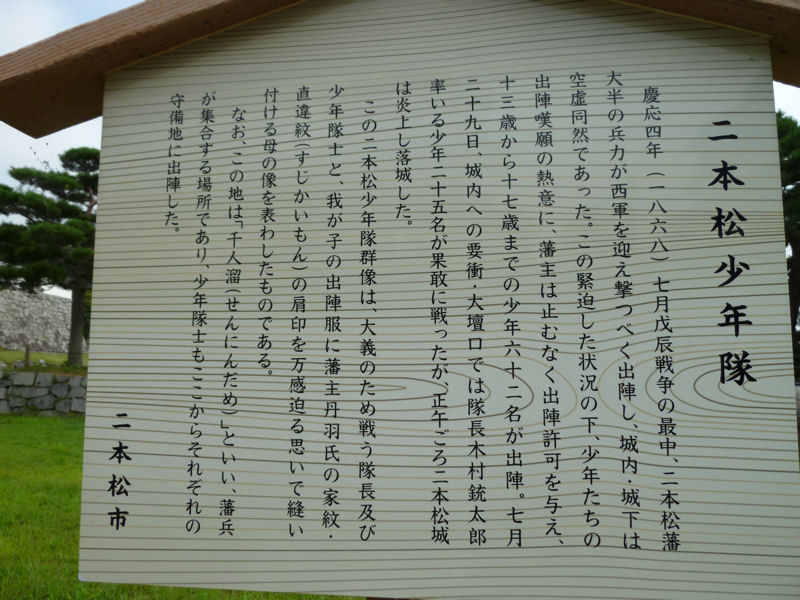 二本松少年隊
慶応四年(一八六八)七月戊辰戦争の最中、二本松藩
大半の兵力が西軍を迎え撃つべく出陣し、城内・城下は
空虚同然であった。この緊迫した状況の下、少年たちの
出陣嘆願の熱意に、藩主は止むなく出陣許可を与え、
十三歳から十七歳までの少年六十二名が出陣。七月
二十九日、城内への要衝・大壇口では隊長木村銃太郎
率いる少年二十五名が果敢に戦ったが、正午ごろ二本松城
は炎上し落城した。
この二本松少年隊群像は、大義のため戦う隊長及び
少年隊士と、我が子の出陣服に藩主丹羽氏の家紋・
直違紋(すじかいもん)の肩印を万感迫る思いで縫い
付ける母の像を表わしたものである。
なお、この地は「千人溜(せんにんだめ)」といい、藩兵
が集合する場所であり、少年隊士もここからそれぞれの
守備地に出陣した。
二本松市